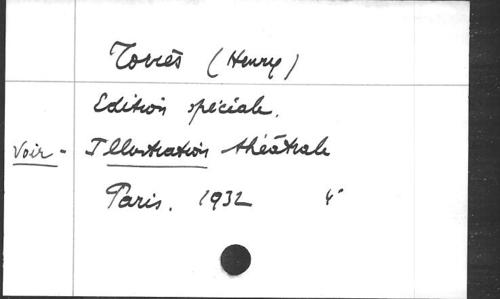 Torrès (Henry)
Edition spéciale.
Voir - Illustration théâtrale
Paris. 1932 4°